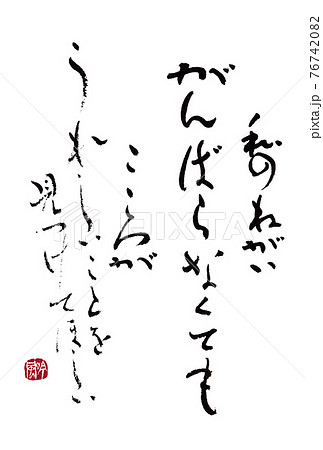 私のねがい
がんばらなくても
こころが
うれしいことを
見つけてほしい
PIXTA
pixta.jp - 76742082